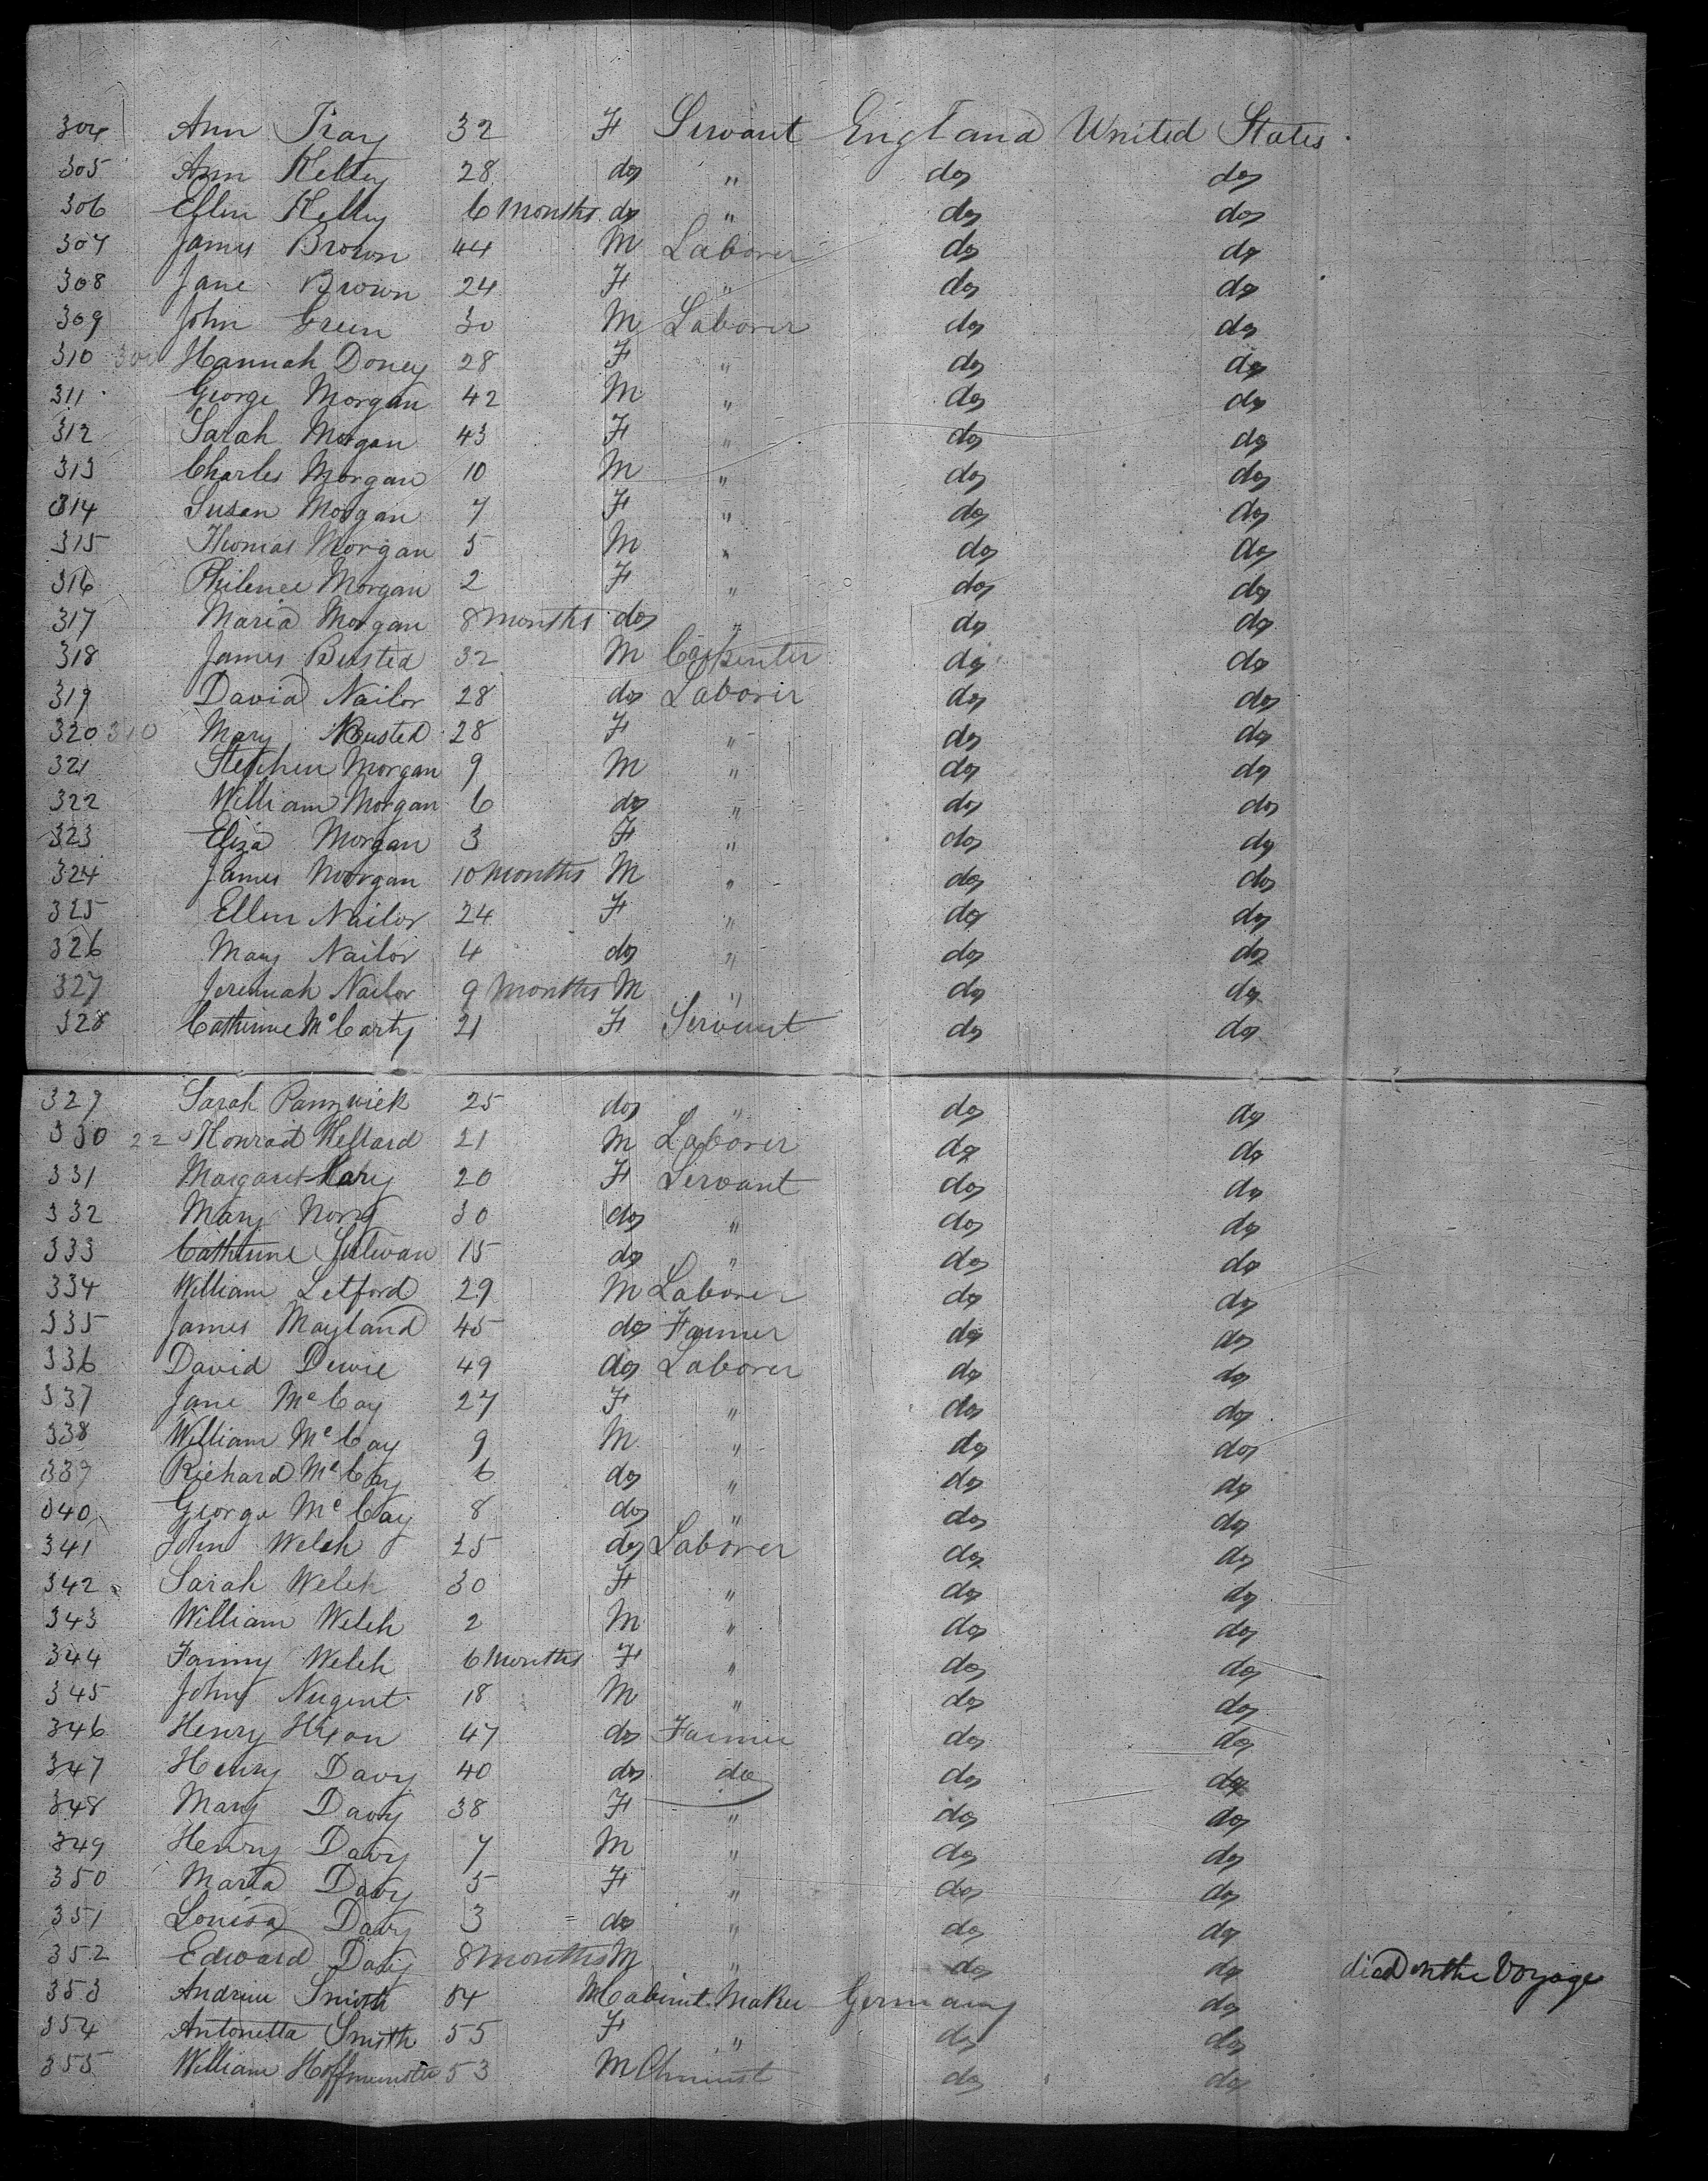 304 Ann Tray 32 F Servant England United States
305 Ann Kelley 28 do " do do
306 Ellen Kelley 6 Months do " do do
307 James Brown 44 M Laborer do do
308 Jane Brown 24 F " do do
309 John Green 30 M Laborer do do
310 300 Hannah Doney 28 F " do do
311 George Morgan 42 M " do do
312 Sarah Morgan 43 F " do do
313 Charles Morgan 10 M " do do
314 Susan Morgan 7 F " do do
315 Thomas Morgan 5 M " do do
316 Philence Morgan 2 F " do do
317 Maria Morgan 8 months do " do do
318 James Busted 32 M Carpenter do do
319 David Nailor 28 do Laborer do do
320 310 Mary Busted 28 F " do do
321 Stephen Morgan 9 M " do do
322 William Morgan 6 do " do do
323 Eliza Morgan 3 F " do do
324 James Morgan 10 Months M " do do
325 Ellen Nailor 24 F " do do
326 Mary Nailor 4 do " do do
327 Jeremiah Nailor 9 Months M " do do
328 Catherine McCarty 21 F Servant do do
329 Sarah 25 do " do do
330 22 Konrad 21 M Laborer do do
331 Margaret 20 F Servant do do
332 Mary 30 do " do do
333 Catherine Sulivan 15 do " do do
334 William Letford 29 M Laborer do do
335 James Mayland 45 do Farmer do do
336 David Dewie 49 do Laborer do do
337 Jane McCay 27 F " do do
338 William McCay 9 M " do do
339 Richard McCay 6 do " do do
340 George McCay 8 do " do do
341 John Welch 25 do Laborer do do
342 Sarah Welch 30 F " do do
343 William Welch 2 M " do do
344 Fanny Welch 6 Months F " do do
345 John Nugent 18 M " do do
346 Henry Hixon 47 do Farmer do do
347 Henry Davy 40 do do do do
348 Mary Davy 38 F " do do
349 Henry Davy 7 M " do do
350 Maria Davy 5 F " do do
351 Louisa Davy 3 do " do do
352 Edward Davy 8 months M " do do died on the Voyage
353 Andrew Smith 54 M Cabinet Maker Germany do
354 Antonetta Smith 55 F " do do
355 William 53 M Chemist do do